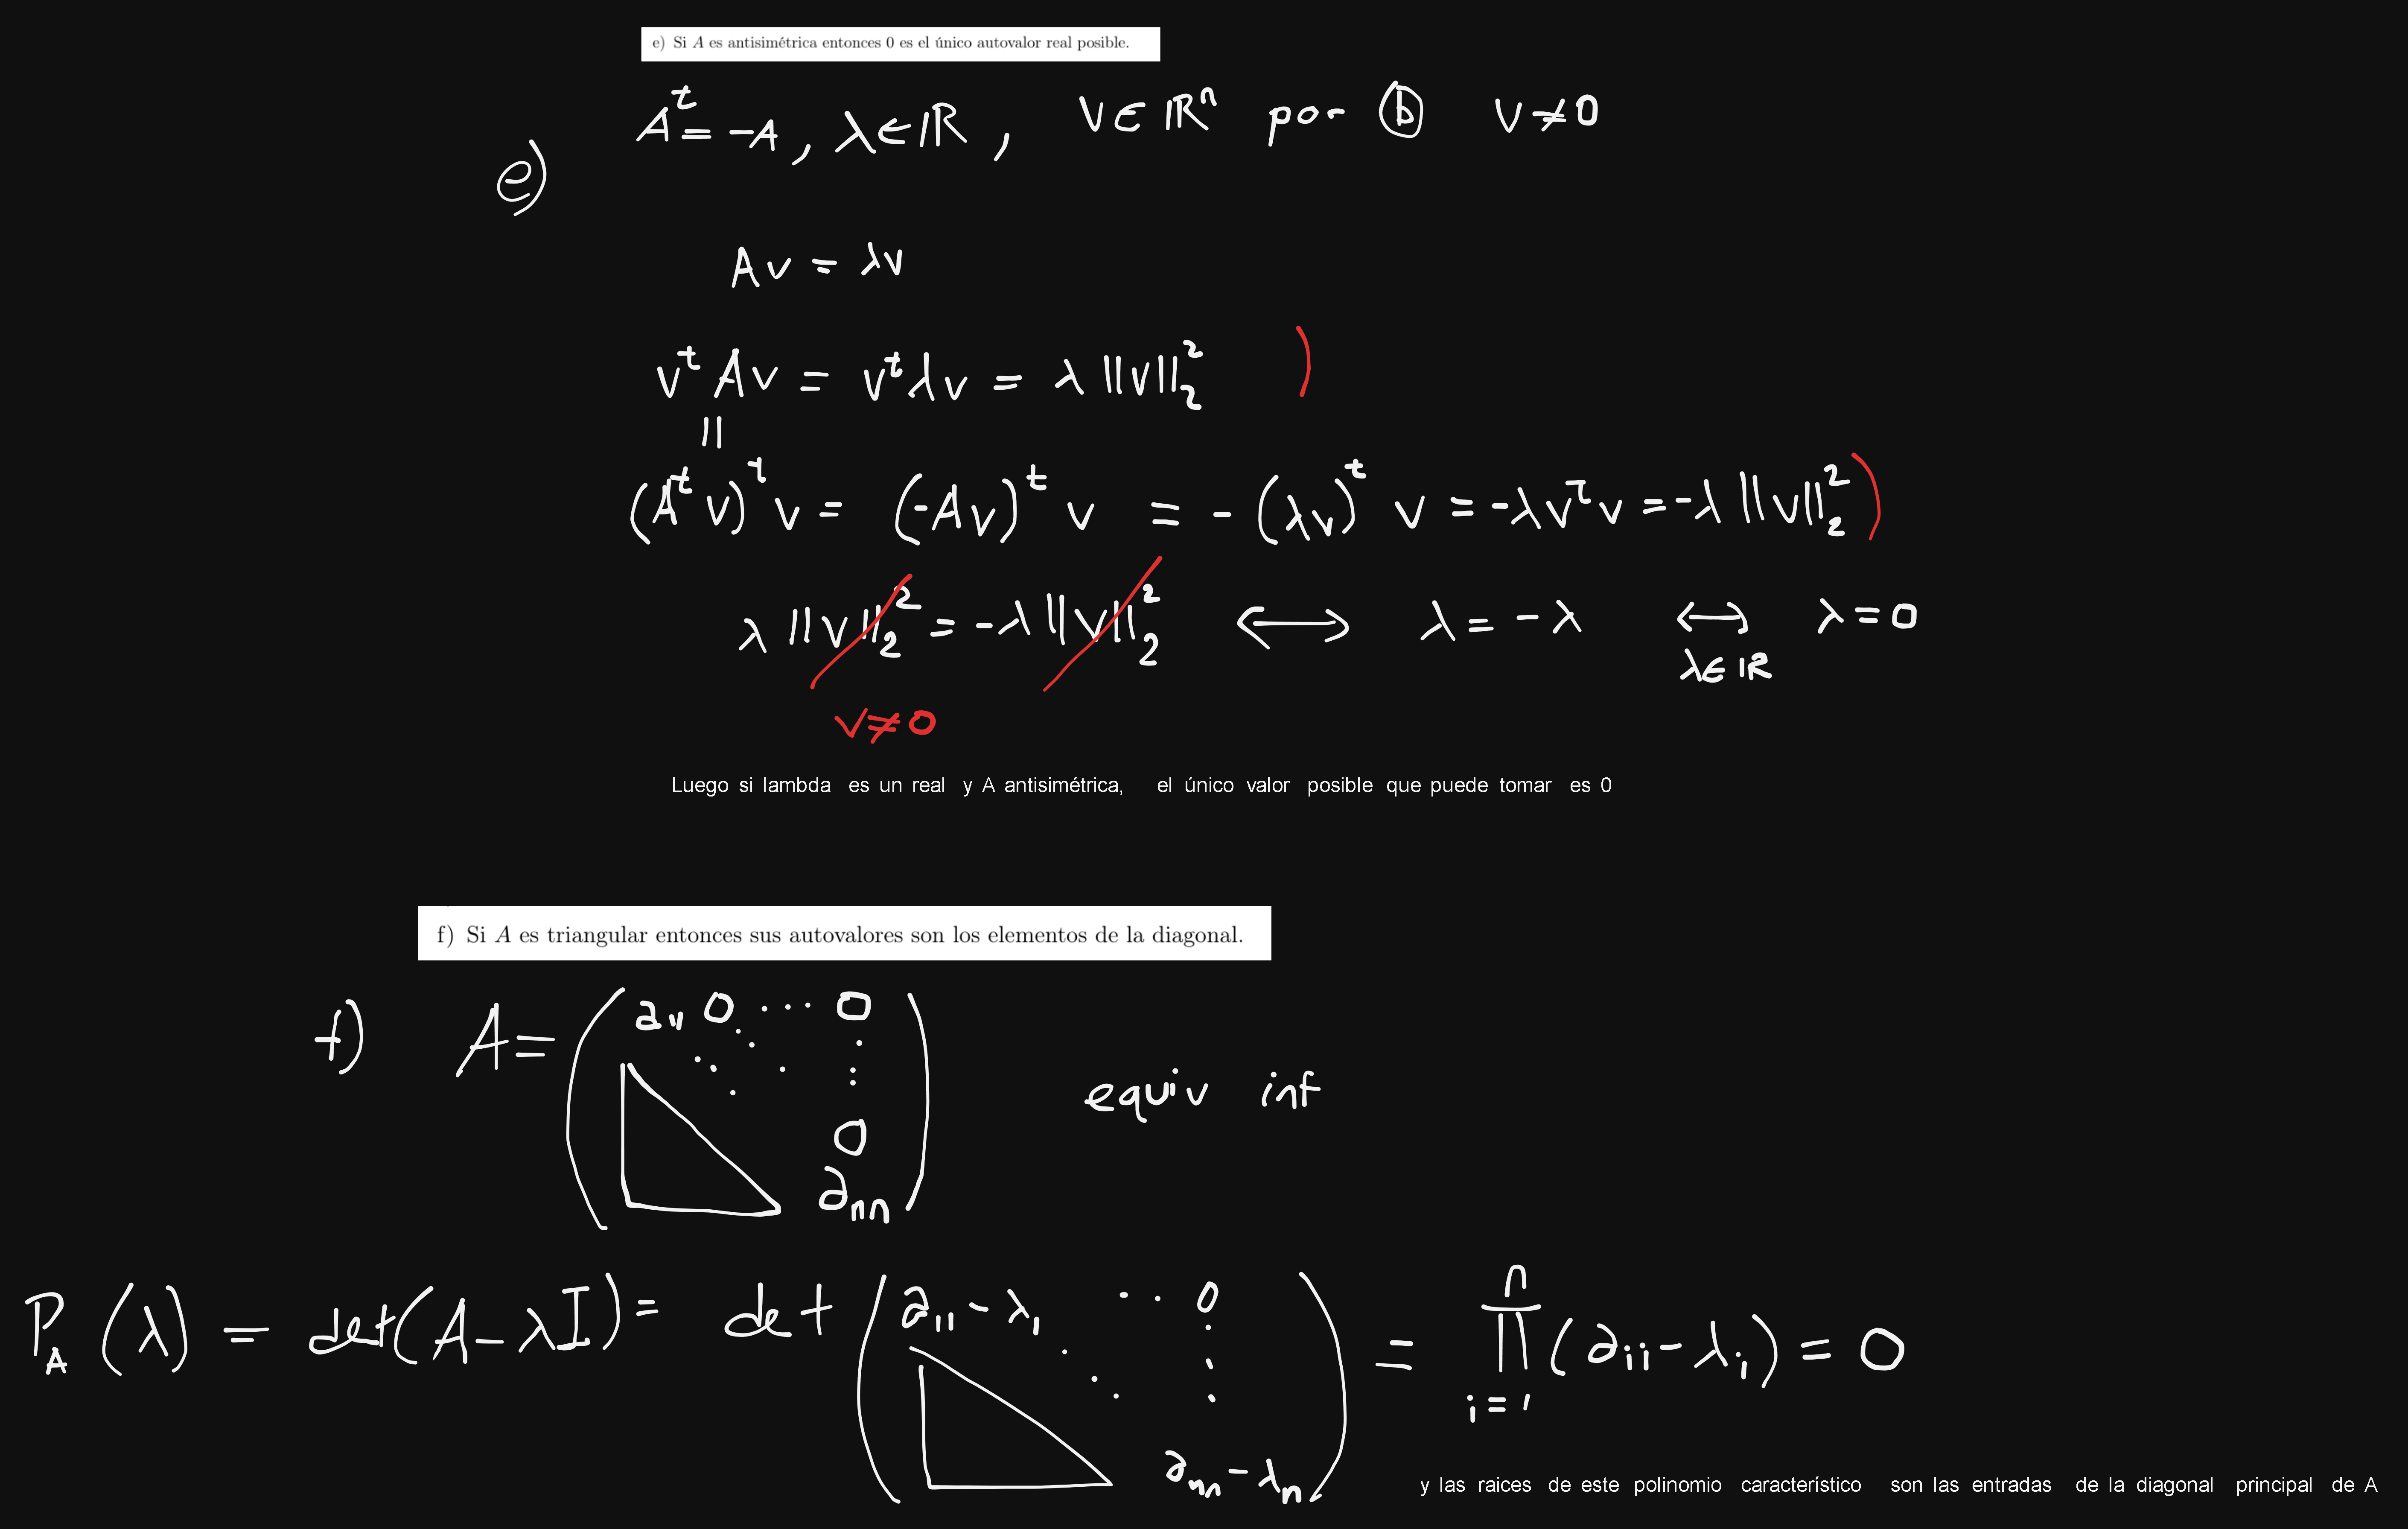 e) Si A es antisimétrica entonces 0 es el único autovalor real posible.
e) Aᵗ = -A, λ ∈ ℝ, V ∈ ℝⁿ por ⓑ V ≠ 0
Av = λv
vᵗAv = vᵗλv = λ ||v||₂²
||
(Aᵗv)ᵗv = (-Av)ᵗ v = -(λv)ᵗ v = -λvᵗv = -λ ||v||₂²
λ ||v||₂² = -λ ||v||₂² ⟷ λ = -λ ⟷ λ = 0
λ ∈ ℝ
V ≠ 0
Luego si lambda es un real y A antisimétrica, el único valor posible que puede tomar es 0
f) Si A es triangular entonces sus autovalores son los elementos de la diagonal.
f) A = ( a₁₁ 0 ... 0
0
aₙₙ ) equiv inf
P_A (λ) = det(A - λI) = det ( a₁₁ - λ₁ .. 0
aₙₙ - λₙ ) = ∏ᵢ₌₁ⁿ (aᵢᵢ - λᵢ) = 0
y las raices de este polinomio característico son las entradas de la diagonal principal de A